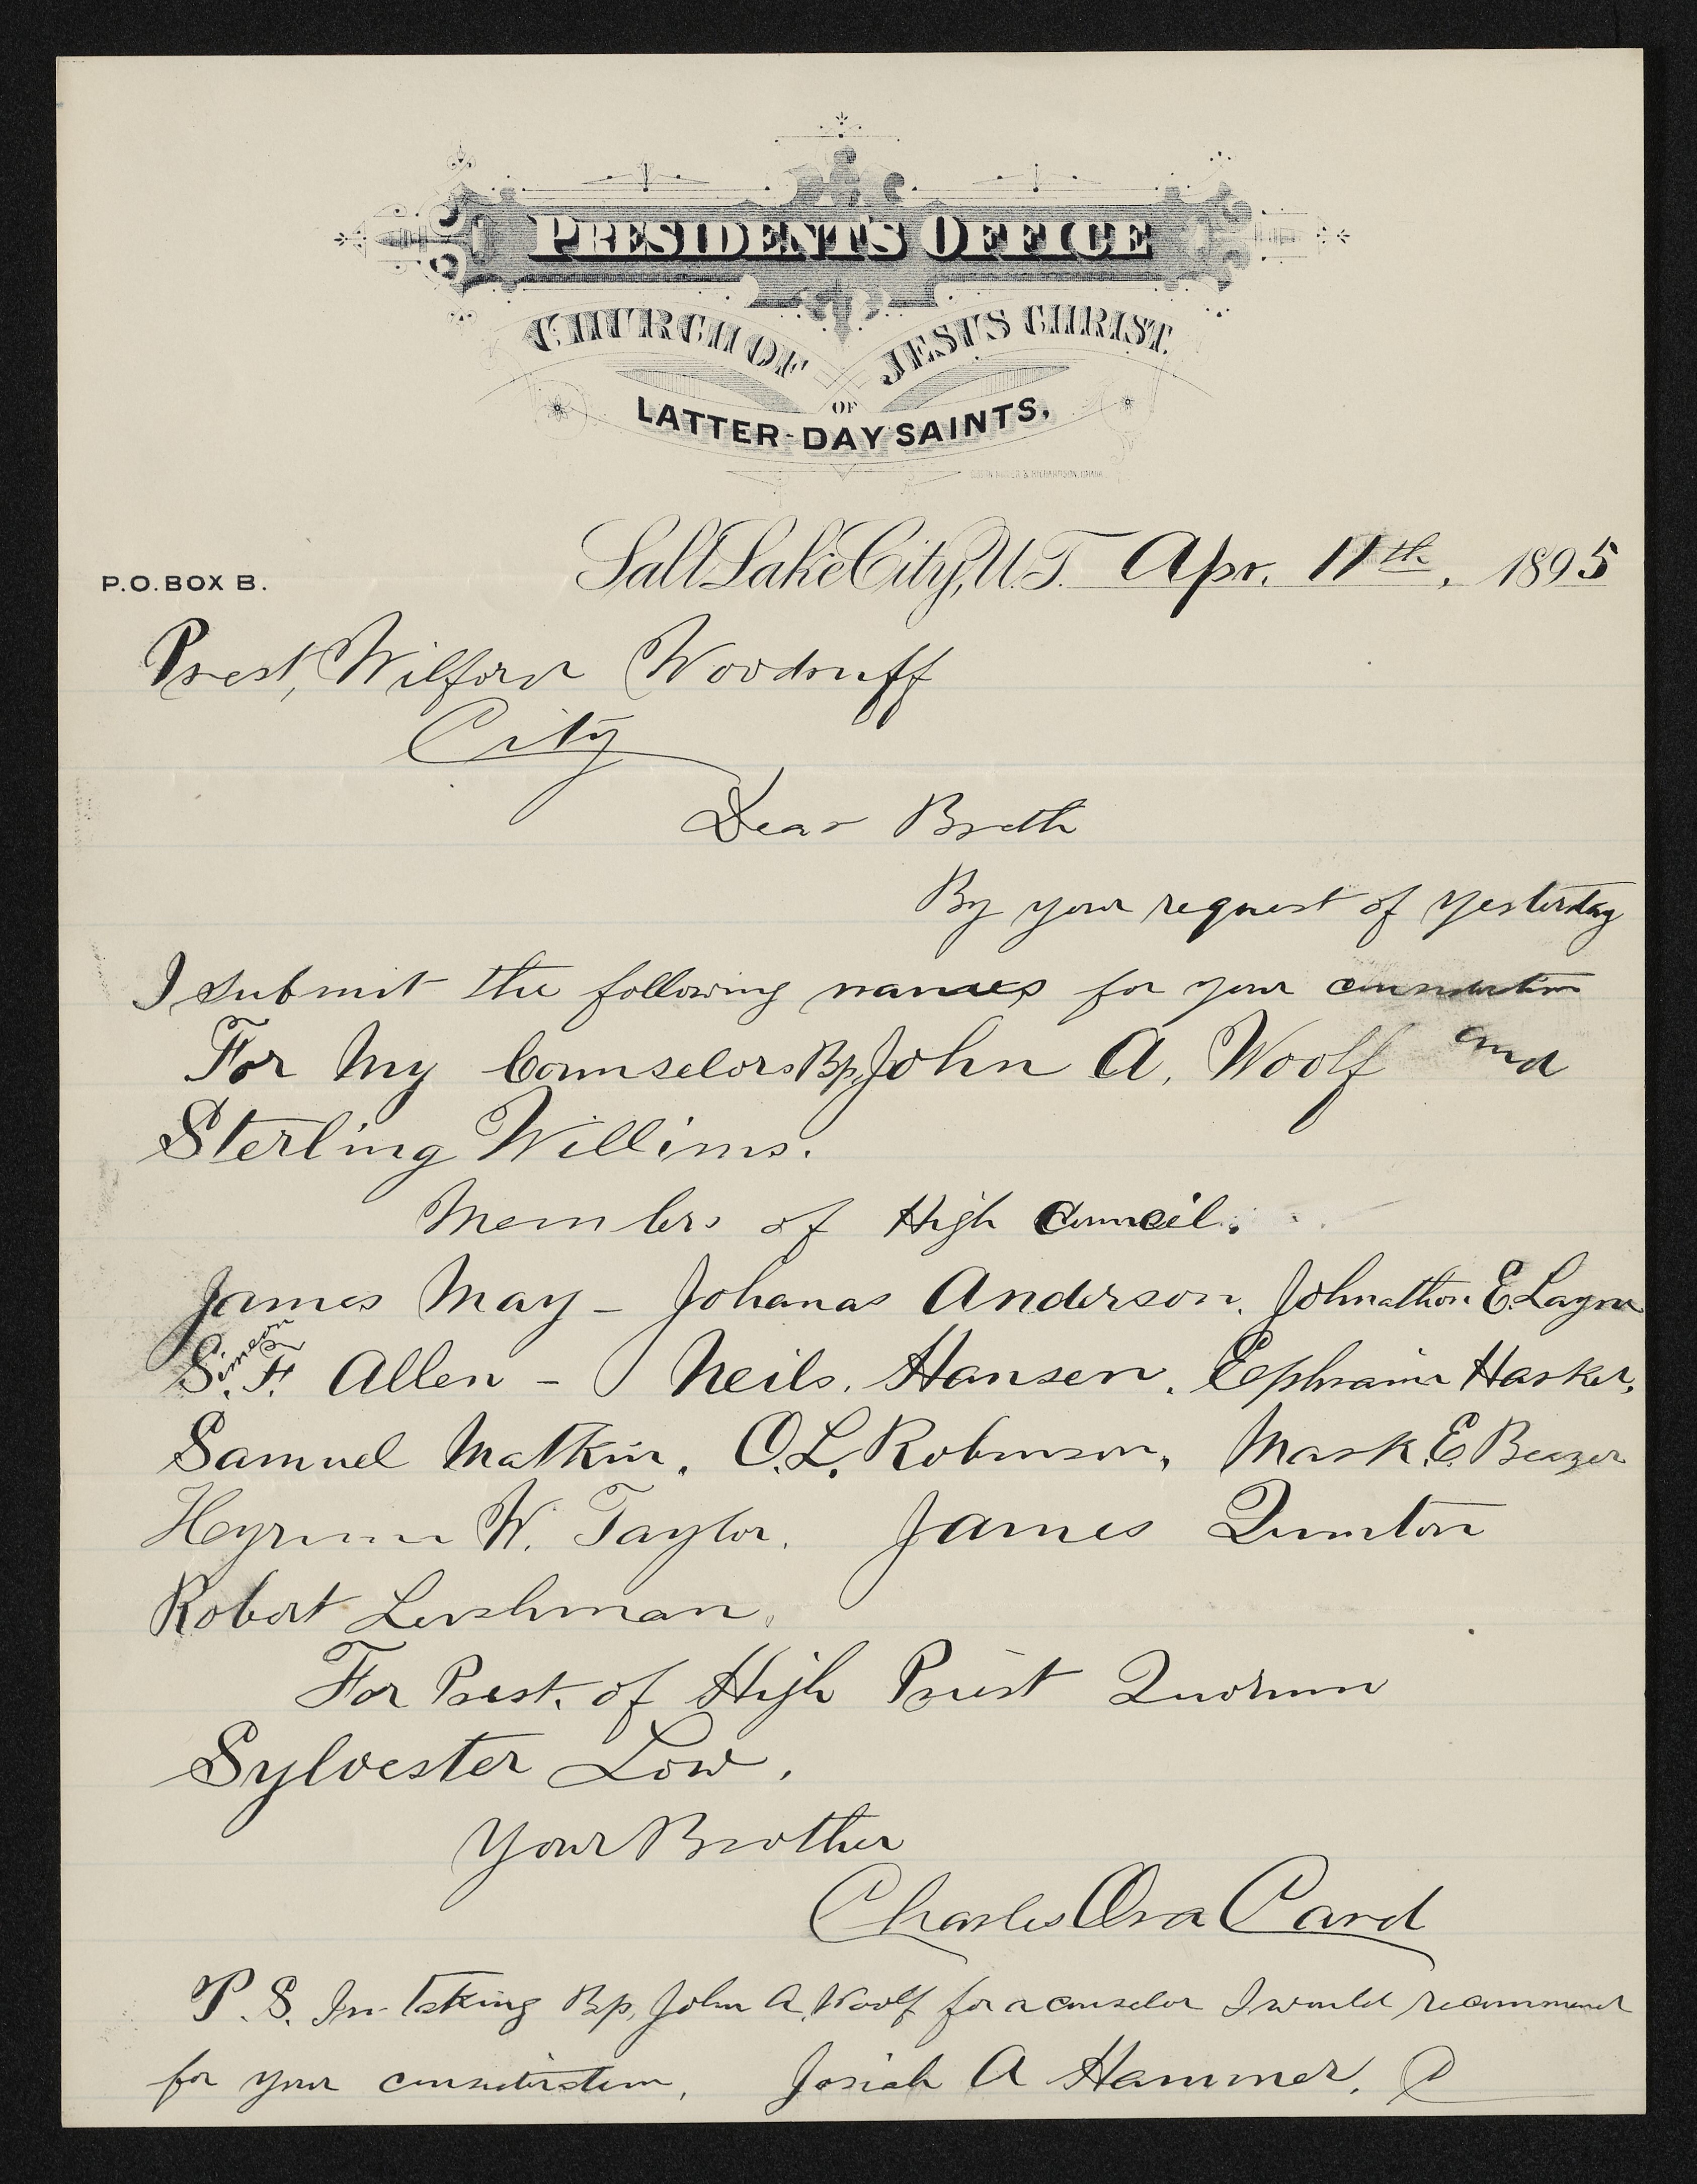 PRESIDENT'S OFFICE
CHURCH OF JESUS CHRIST
OF
LATTER-DAY SAINTS,
P.O. BOX B.
Salt Lake City, U.T. Apr. 11th, 1895
Prest, Wilford Woodruff
City
Dear Broth
By your request of yesterday
I submit the following names for your consideration
For My Counselors Bp, John A. Woolf and
Sterling Willims.
Members of High Council.
James May - Johanas Anderson. Johnathon E. Layne
S. Simeon F. Allen - Neils. Hansen. Ephraim Harker,
Samuel Matkin. O.L. Robinson, Mark E. Beazer
Hyrum W. Taylor. James Quinton
Robert Leishman,
For Prest. of High Priest Quorum
Sylvester Low,
Your Brother
Charles Ora Card
P.S. In taking Bp. John A. Woolf for a counselor I would recommend
for your consideration, Josiah A Hammer. C